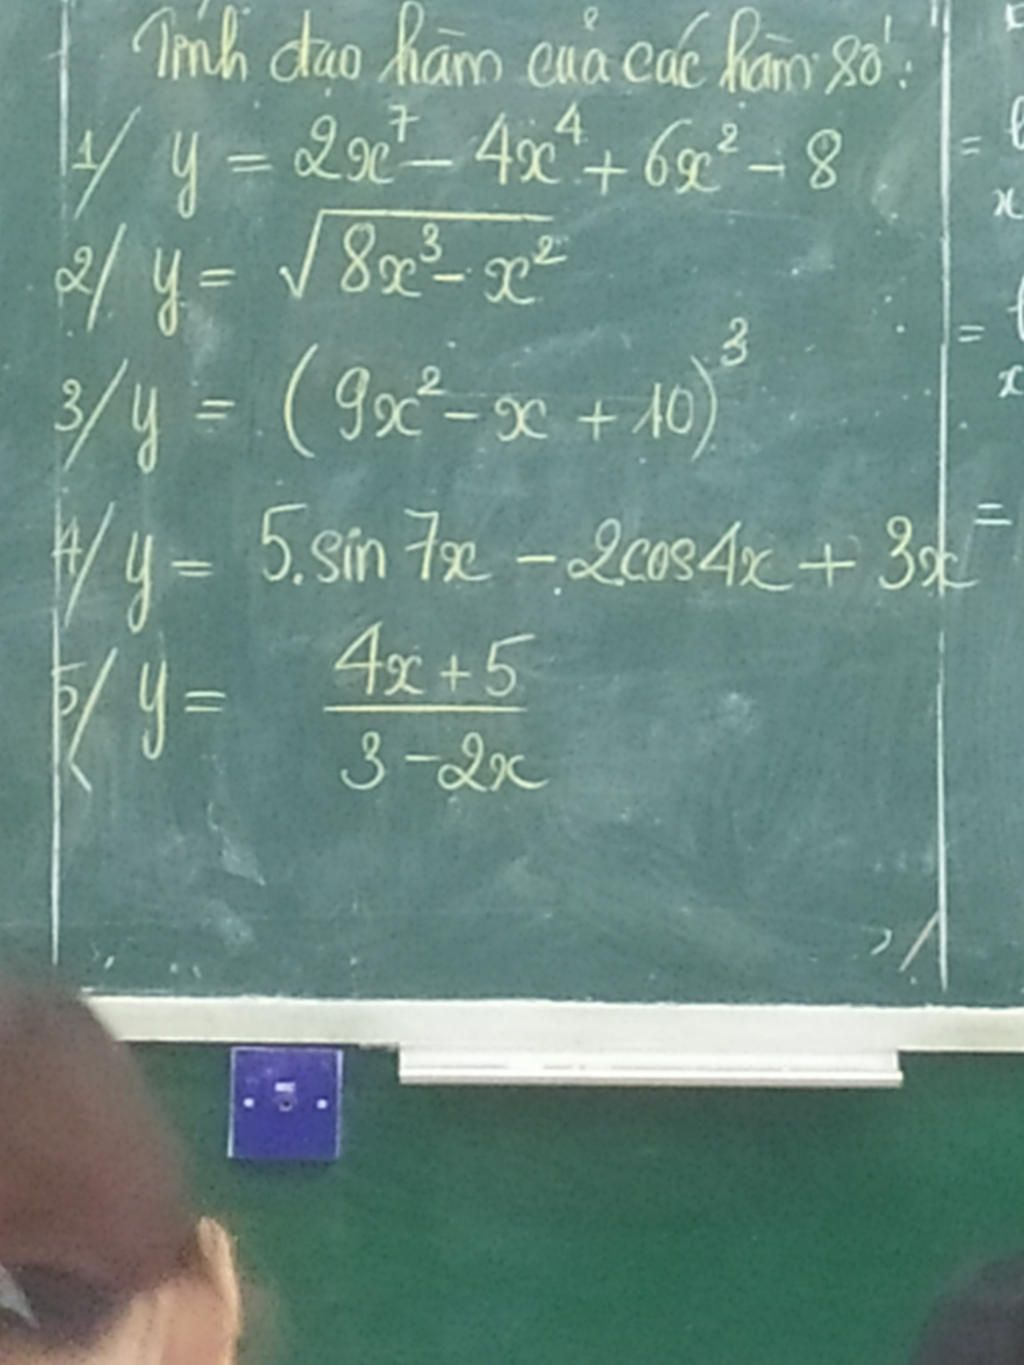 Tính đạo hàm của các hàm số:
1/ y = 2x⁷ - 4x⁴ + 6x² - 8
2/ y = √(8x³ - x²)
3/ y = (9x² - x + 10)³
4/ y = 5.sin7x - 2cos4x + 3x
5/ y = (4x + 5)/(3 - 2x)
=
x
=
x
=